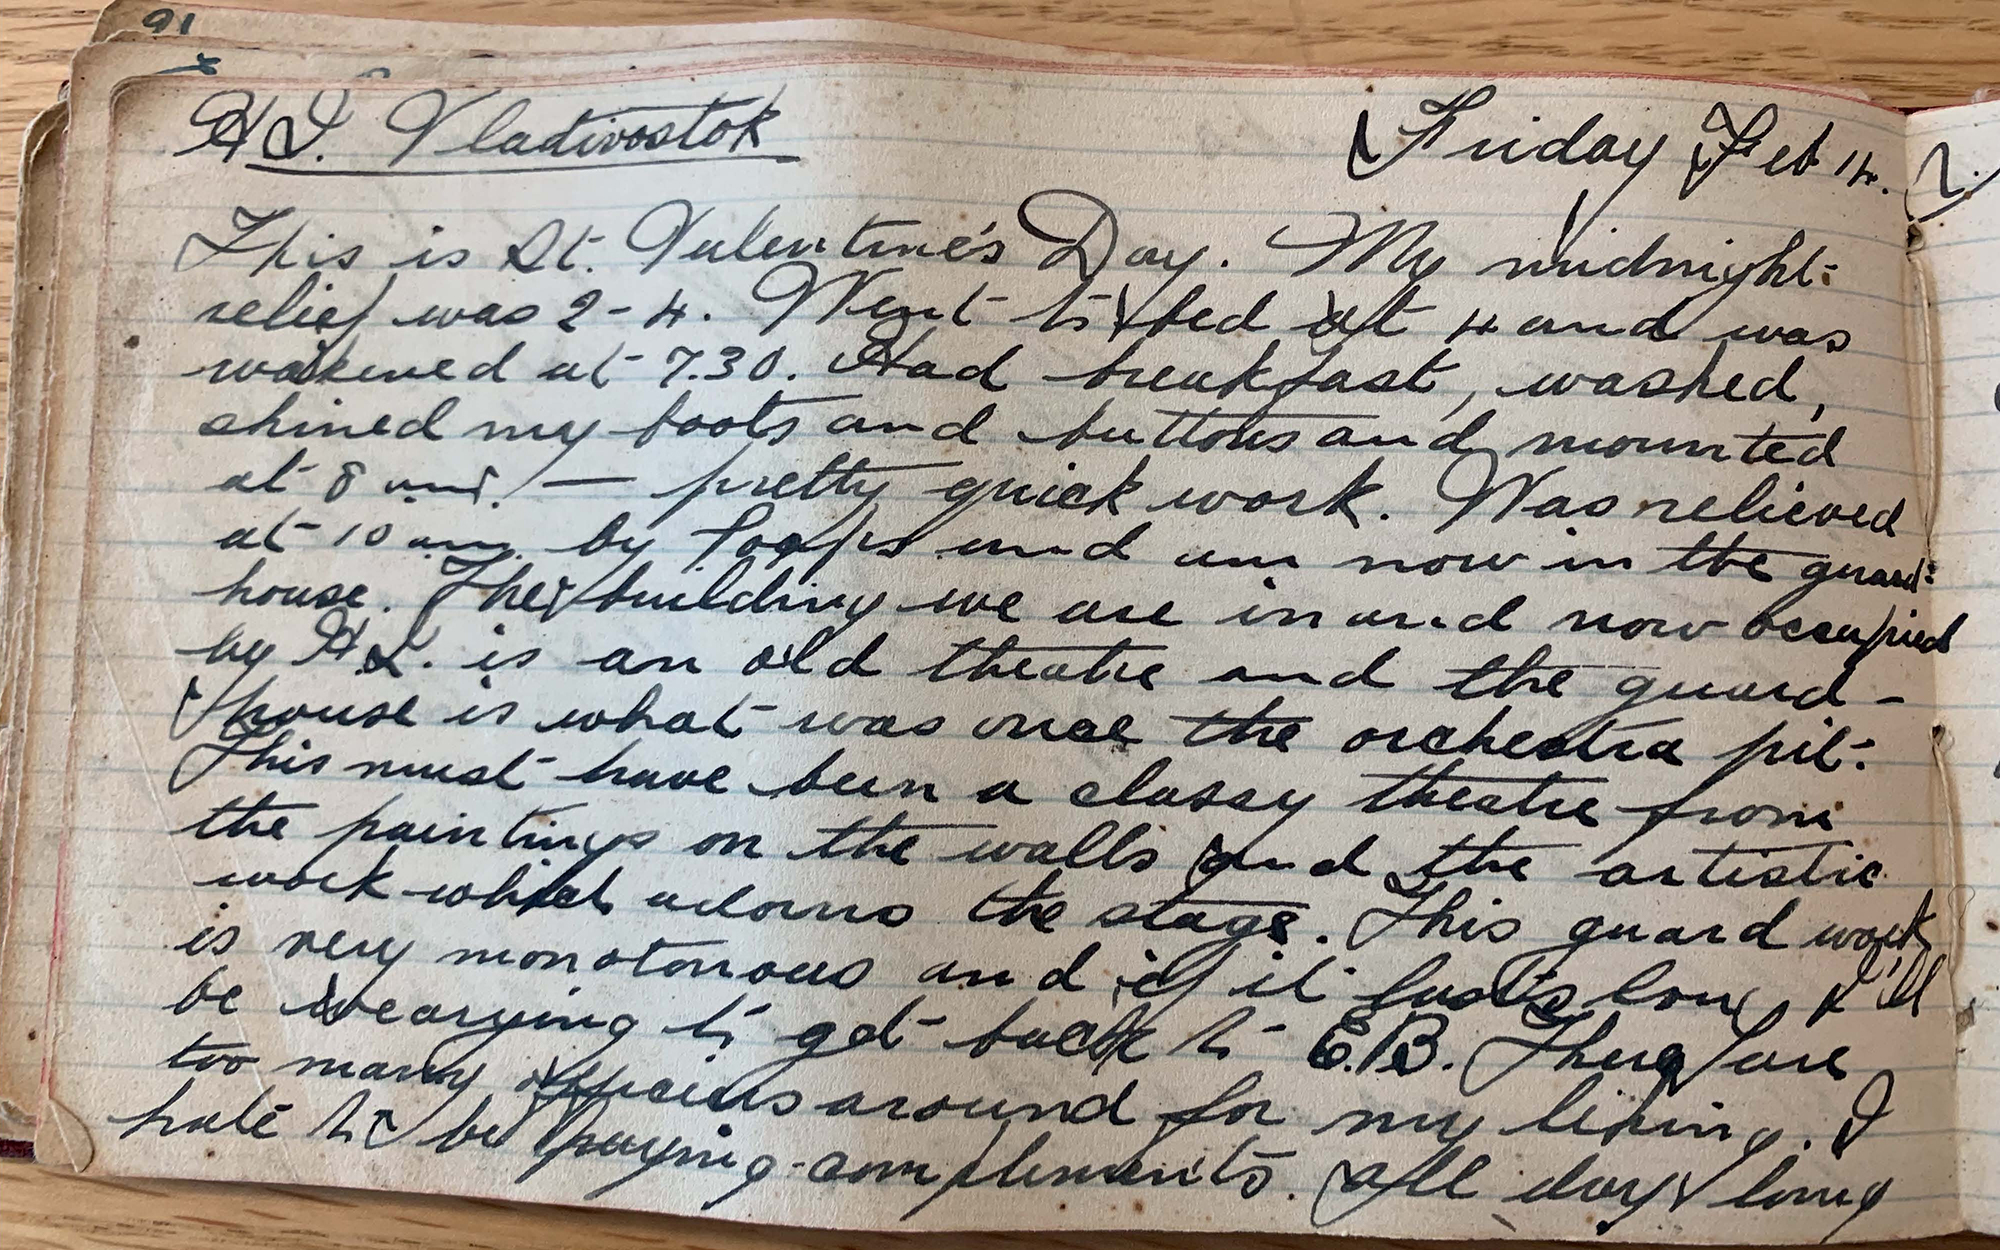 91
H.Q. Vladivostok
Friday Feb 14.
This is St. Valentine's Day. My midnight
relief was 2-4. Went to bed at 4 and was
wakened at 7.30. Had breakfast, washed,
shined my boots and buttons and mounted
at 8 am. — pretty quick work. Was relieved
at 10 am by and am now in the guard-
house. The building we are in and now occupied
by H.Q. is an old theatre and the guard-
house is what was once the orchestra pit.
This must have been a classy theatre from
the paintings on the walls and the artistic
work which adorns the stage. This guard work
is very monotonous and if it lasts long I'll
be wearying to get back to E.B. There are
too many officers around for my liking. I
hate to be paying compliments all day long